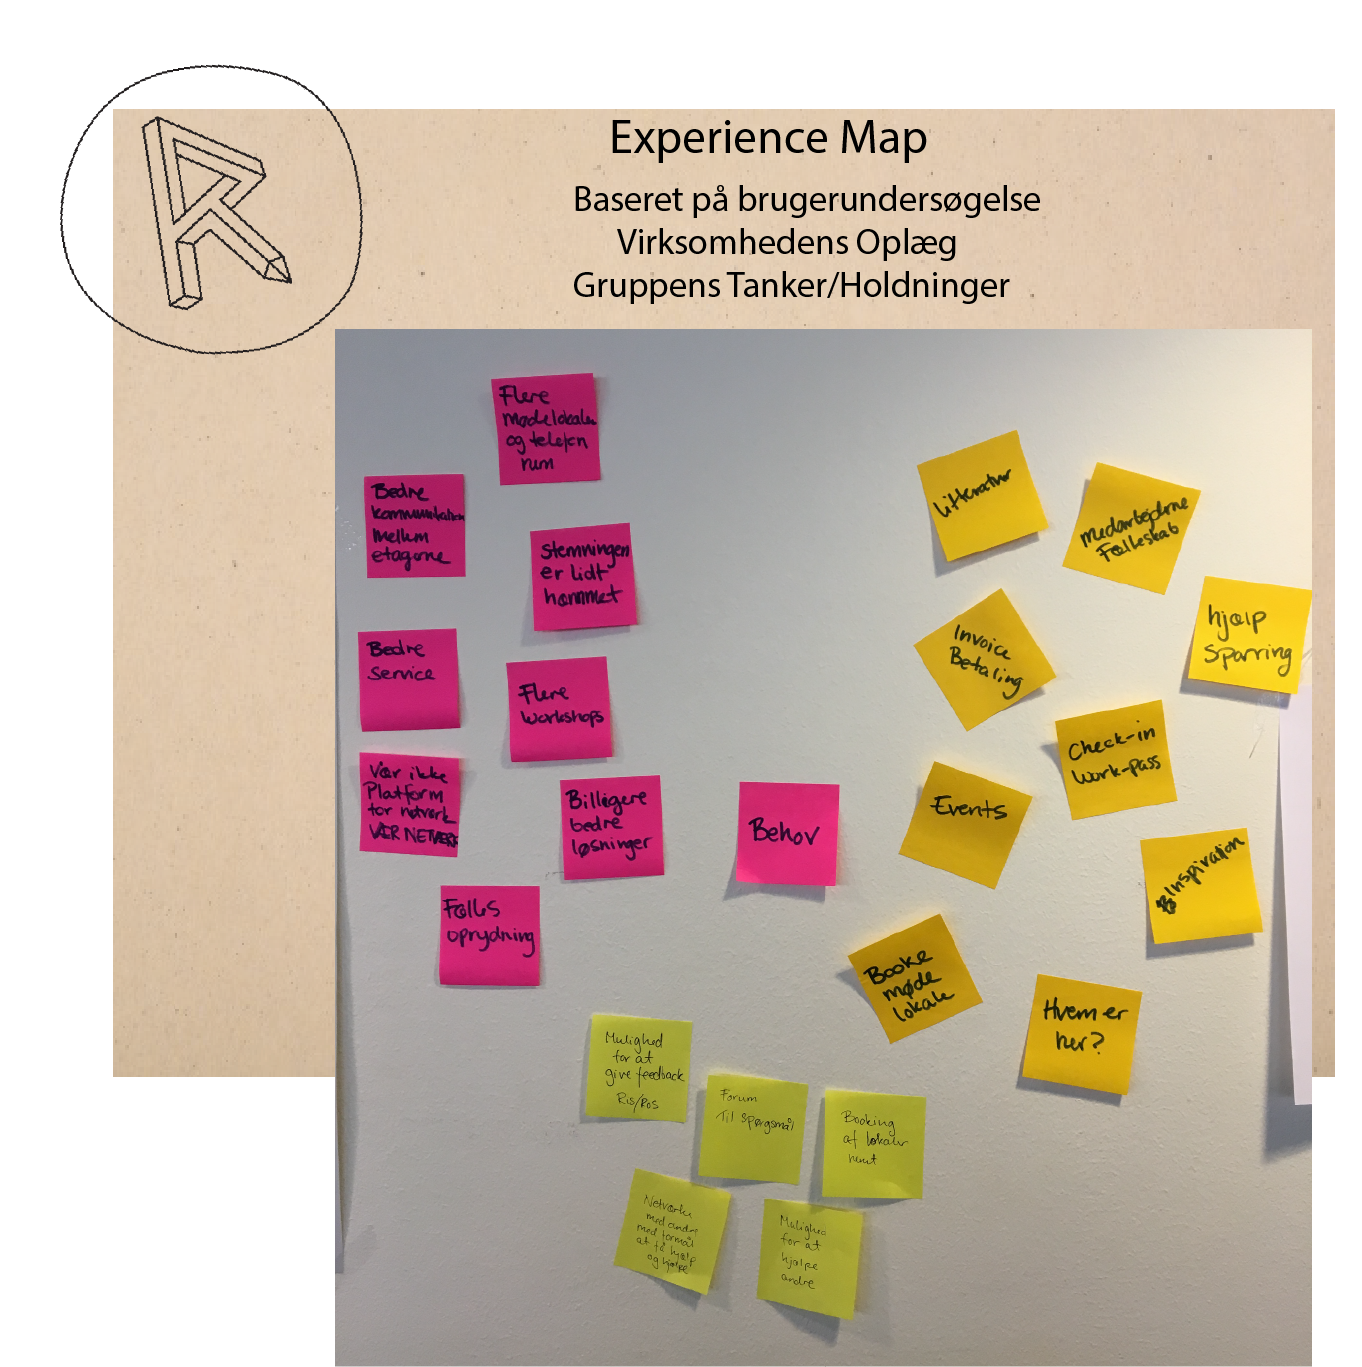 Experience Map
Baseret på brugerundersøgelse
Virksomhedens Oplæg
Gruppens Tanker/Holdninger
Flere
mødelokaler
og telefon
rum
Bedre
kommunikation
mellem
etagerne
Stemningen
er lidt
hæmmet
Bedre
Service
Flere
workshops
Vær ikke
Platform
for netværk
VÆR NETVÆRK
Billigere
bedre
løsninger
Behov
Fælles
oprydning
Litteratur
Medarbejderne
Fælleskab
hjælp
Sparring
Invoice
Betaling
Check-in
Work-pass
Events
Inspiration
Booke
møde
lokale
Hvem er
her?
Mulighed
for at
give feedback
Ris/Ros
Forum
Til spørgsmål
Booking
af lokaler
nemt
Netværke
med andre
med formål
at få hjælp
og hjælpe
Mulighed
for at
hjælpe
andre